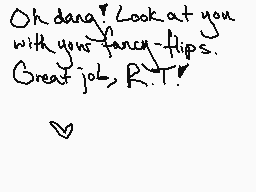 Oh dang! Look at you
with your fancy-flips.
Great job, R.T!